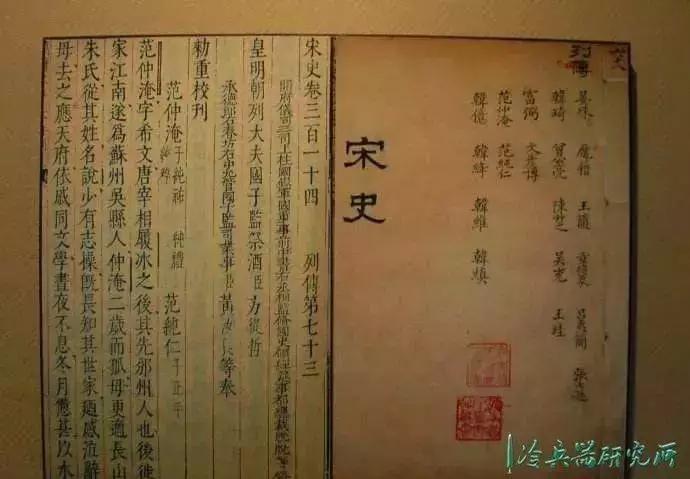 列傳
晏殊 龐籍 王隨 章得象 呂夷簡 張士遜
韓琦 曾公亮 陳升之 吳充 王珪
富弼 文彥博
范仲淹 范純仁
韓億 韓絳 韓維 韓縝
宋史
宋史卷三百一十四 列傳第七十三
開府儀同三司上柱國錄軍國重事前中書右丞相監修國史領經筵事都總裁脫脫等修
皇明朝列大夫國子監祭酒臣方從哲
承德郎右春坊右中允管國子監司業事臣黃汝良等奉
勅重校刊
范仲淹 子純祐 純禮 純粹 范純仁 子正平
范仲淹字希文唐宰相履冰之後其先邠州人也後徙
家江南遂爲蘇州吳縣人仲淹二歲而孤母更適長山
朱氏從其姓名說少有志操既長知其世家迺感泣辭
母去之應天府依戚同文學晝夜不息冬月憊甚以水
冷兵器研究所